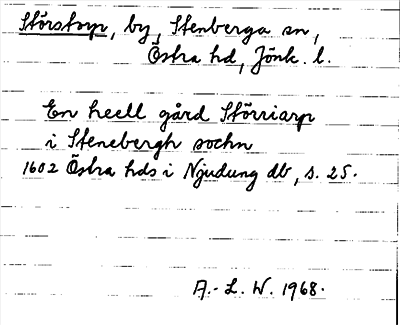 Störstorp, by, Stenberga sn,
Östra hd, Jönk. l.
En heell gård Störriarp
i Stenebergh sochn
1602 Östra hds i Njudung db, s. 25.
A.-L. W. 1968.